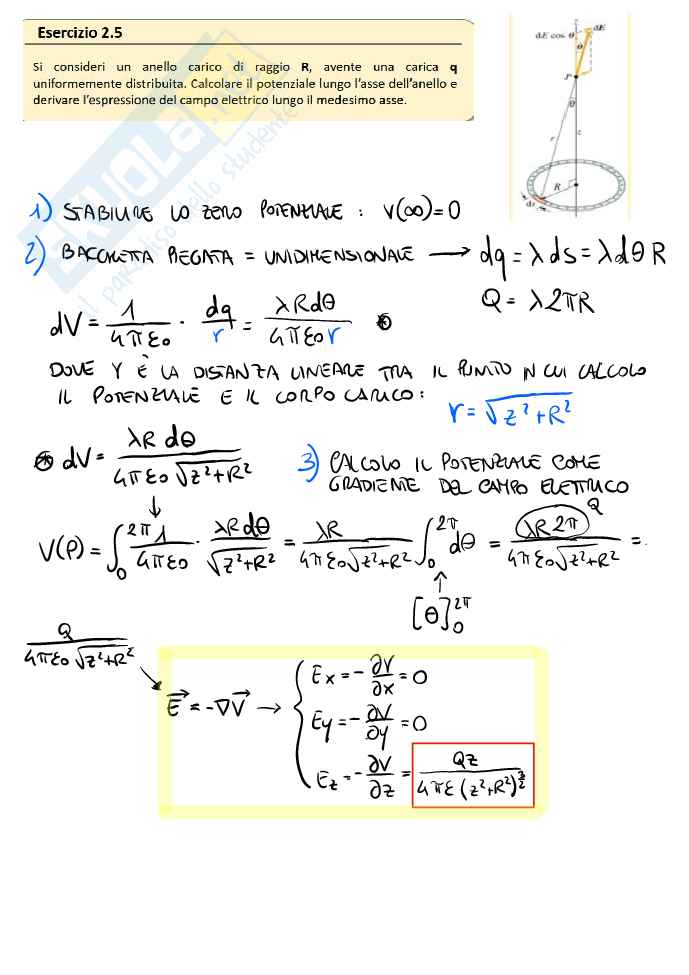 Esercizio 2.5
Si consideri un anello carico di raggio R, avente una carica q
uniformemente distribuita. Calcolare il potenziale lungo l'asse dell'anello e
derivare l'espressione del campo elettrico lungo il medesimo asse.
dE cos θ
dE
θ
P
θ
r
z
R
ds
1) STABILIRE LO ZERO POTENZIALE : V(∞)=0
2) BACCHETTA PIEGATA = UNIDIMENSIONALE → dq = λds = λdθ R
Q = λ2πR
dV = 1/4πε0 · dq/r = λRdθ/4πε0r ⊛
DOVE r È LA DISTANZA LINEARE TRA IL PUNTO IN CUI CALCOLO
IL POTENZIALE E IL CORPO CARICO:
r = √z²+R²
⊛ dV = λR dθ/4πε0√z²+R²
3) CALCOLO IL POTENZIALE COME
GRADIENTE DEL CAMPO ELETTRICO
↓
V(P) = ∫₀²π 1/4πε0 · λR dθ/√z²+R² = λR/4πε0√z²+R² ∫₀²π dθ = λR2π/4πε0√z²+R² = ..
Q
↑
[θ]₀²π
Q/4πε0√z²+R²
E⃗ = -∇V⃗ →
Ex = -∂V/∂x = 0
Ey = -∂V/∂y = 0
Ez = -∂V/∂z = Qz/4πε(z²+R²)^3/2
SKUOLA.net
il paradiso dello studente